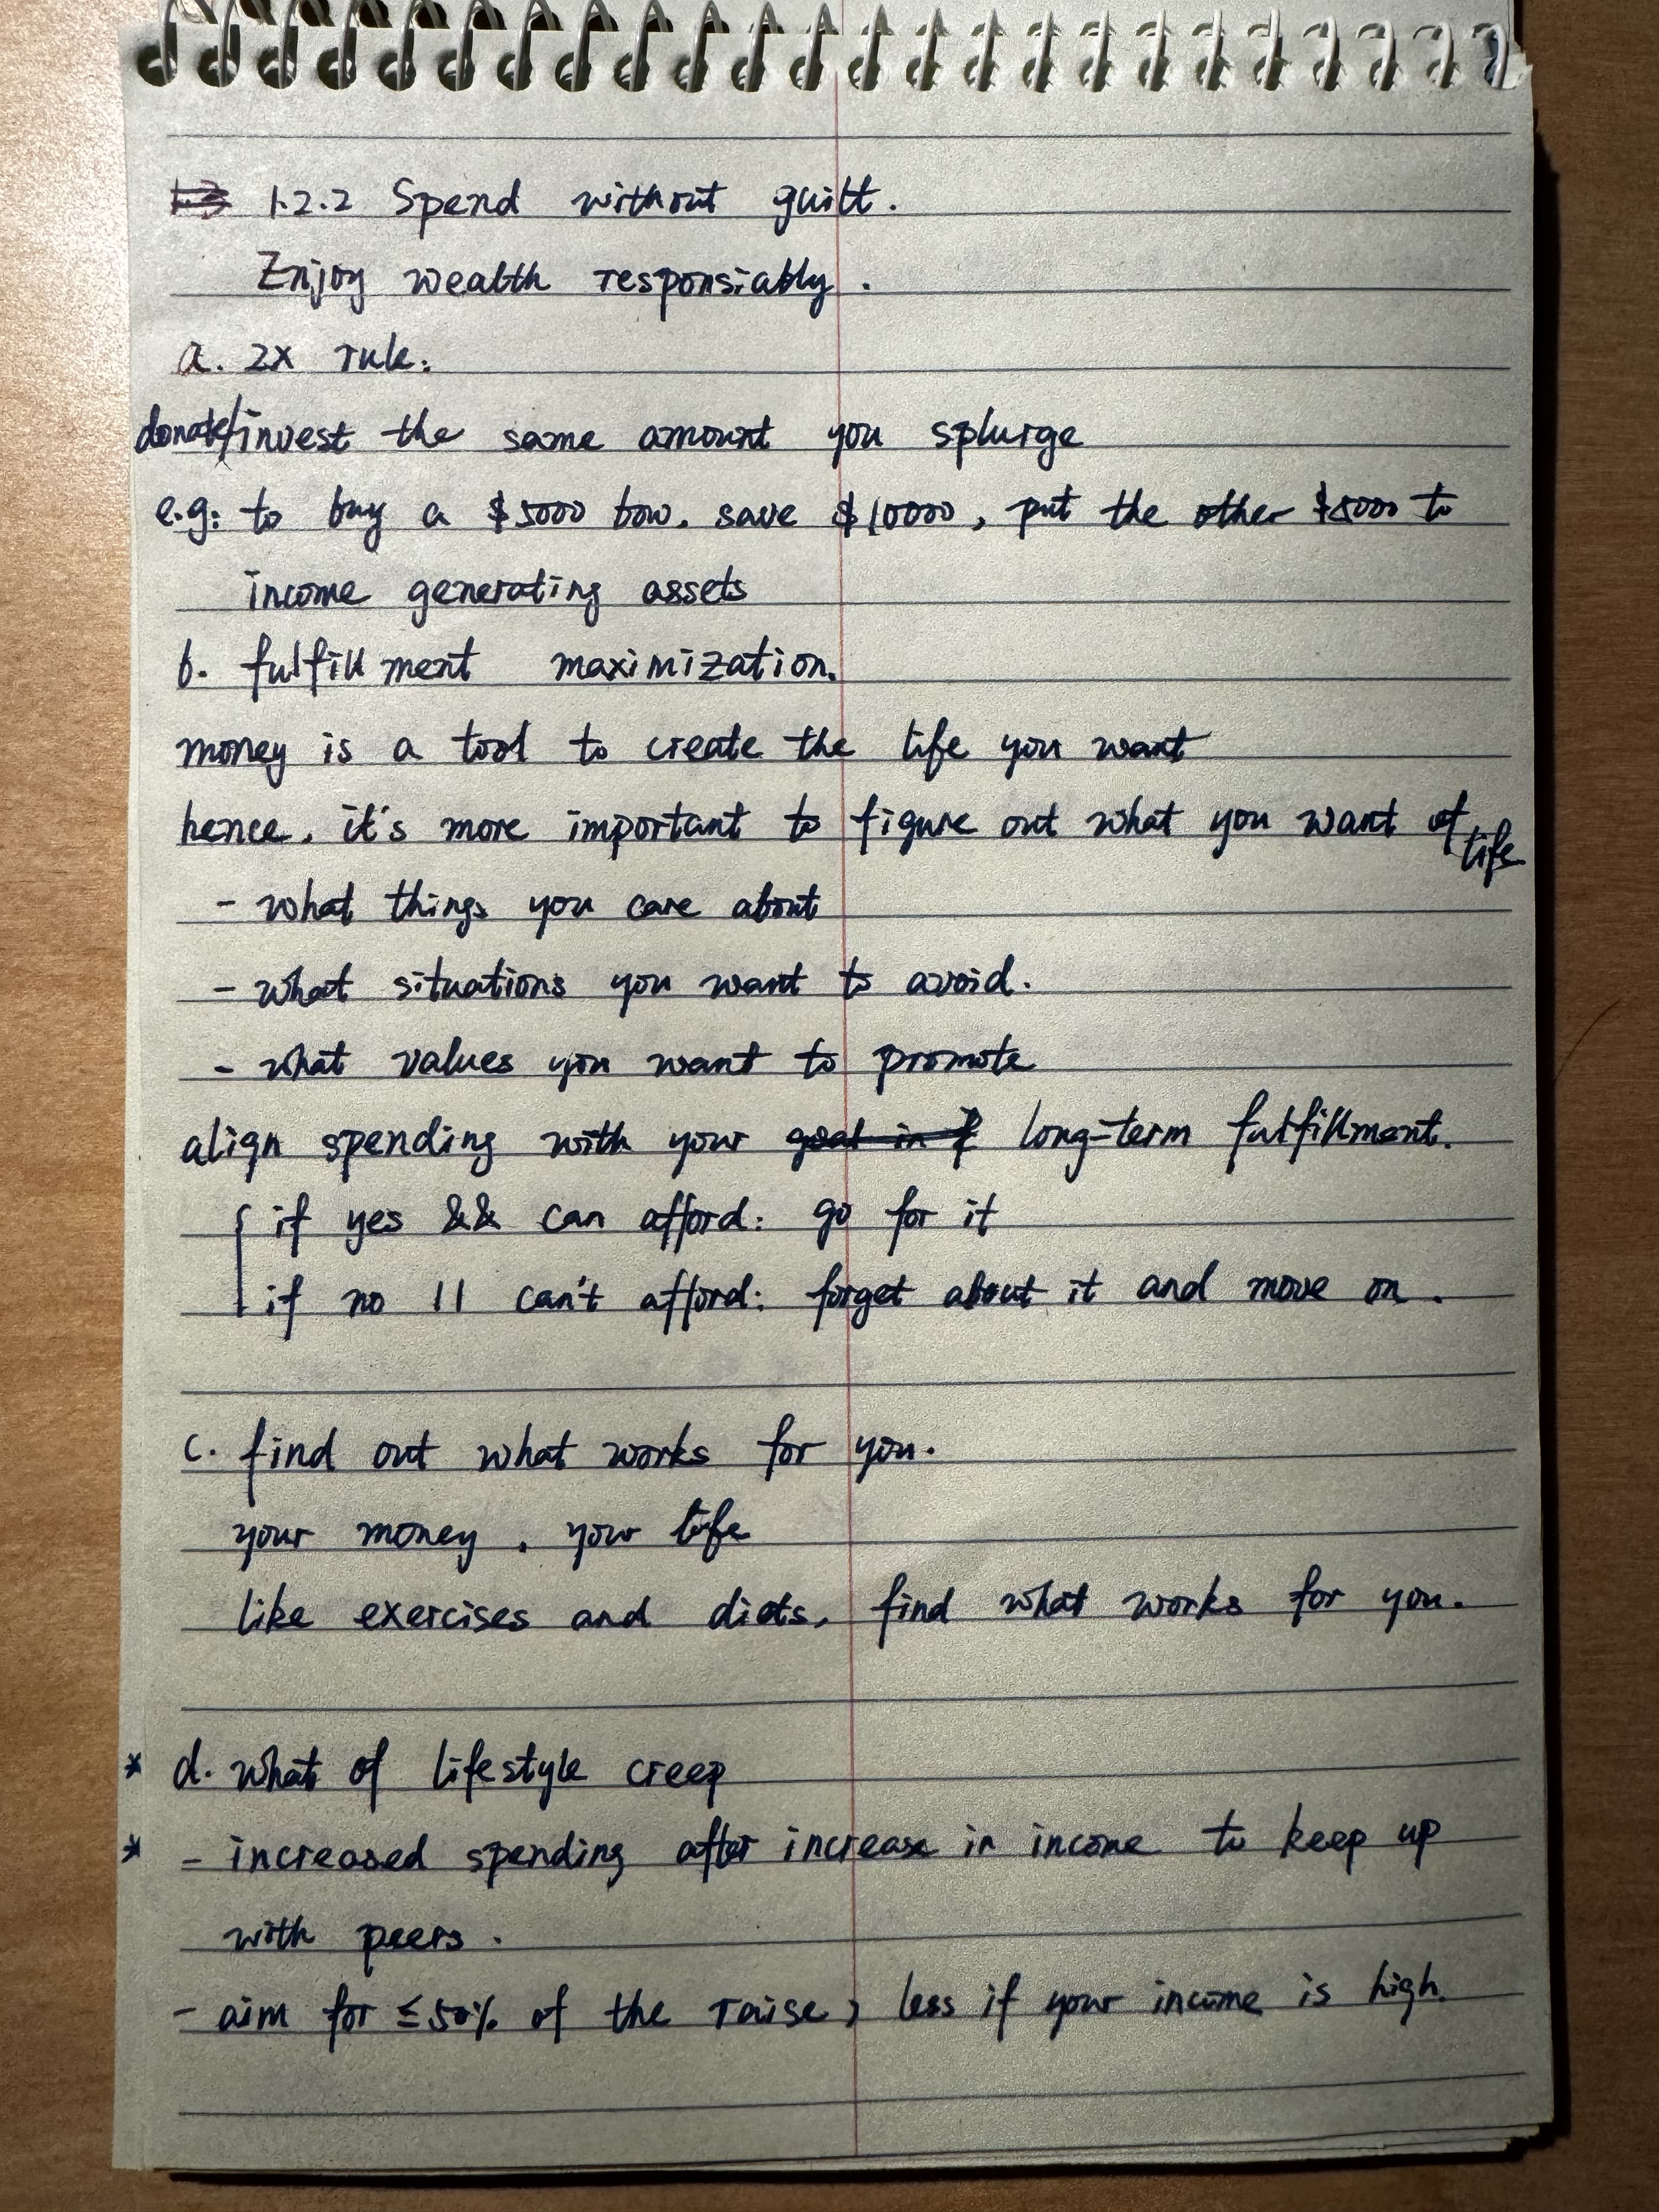 1.3 1.2.2 Spend without guilt.
Enjoy wealth responsiably.
a. 2x rule:
donate/invest the same amount you splurge
e.g: to buy a $5000 bow. save $10000, put the other $5000 to
income generating assets
b. fulfillment maximization.
money is a tool to create the life you want
hence, it's more important to figure out what you want of life
- what things you care about
- what situations you want to avoid.
- what values you want to promote
align spending with your goal in f long-term fulfillment.
if yes && can afford: go for it
if no || can't afford: forget about it and move on.
c. find out what works for you.
your money, your life
like exercises and diets, find what works for you.
* d. what of lifestyle creep
* - increased spending after increase in income to keep up
with peers.
- aim for ≤50% of the raise, less if your income is high.